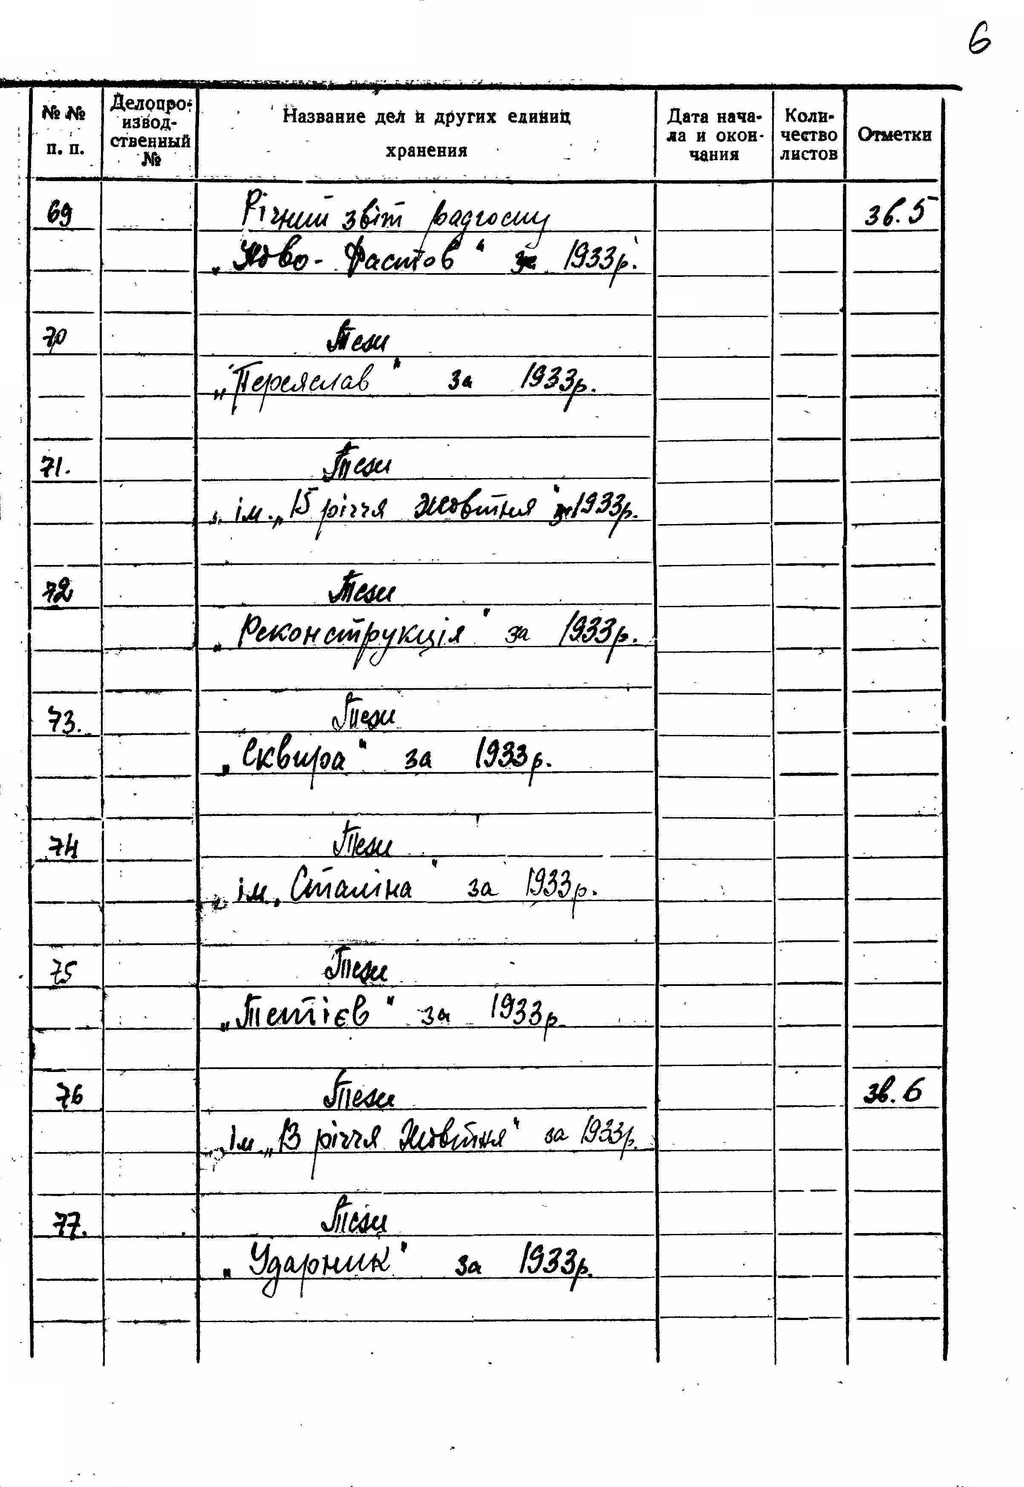 6
№№ п. п.
Делопро-
извод-
ственный
№
Название дел и других единиц
хранения
Дата нача-
ла и окон-
чания
Коли-
чество
листов
Отметки
69 Річний звіт радгоспу зв. 5
„Ново-Фастов" за 1933р.
70 Тези
„Переяслав" за 1933р.
71. Тези
ім. „15 річчя Жовтня" за 1933р.
72 Тези
„Реконструкція" за 1933р.
73. Тези
„Сквира" за 1933р.
74 Тези
ім. Сталіна" за 1933р.
75 Тези
„Тетієв" за 1933р.
76 Тези зв. 6
Ім. „13 річчя Жовтня" за 1933р.
77. Тези
„Ударник" за 1933р.